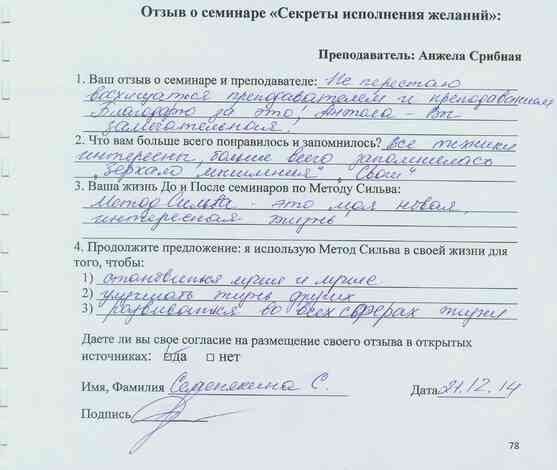 Отзыв о семинаре «Секреты исполнения желаний»:
Преподаватель: Анжела Срибная
1. Ваш отзыв о семинаре и преподавателе: Не перестаю
восхищаться преподавателем и преподаванием
Благодарю за это! Анжела - Вы
замечательная!
2. Что вам больше всего понравилось и запомнилось? Все техники
интересны, больше всего запомнилась
„Зеркало мышления",
3. Ваша жизнь До и После семинаров по Методу Сильва:
Метод Сильва - это моя новая,
интересная жизнь
4. Продолжите предложение: я использую Метод Сильва в своей жизни для
того, чтобы:
1) становиться лучше и лучше
2) улучшать жизнь других
3) развиваться во всех сферах жизни
Даете ли вы свое согласие на размещение своего отзыва в открытых
источниках: да нет
Имя, Фамилия С.
Дата 21.12.14
Подпись
78